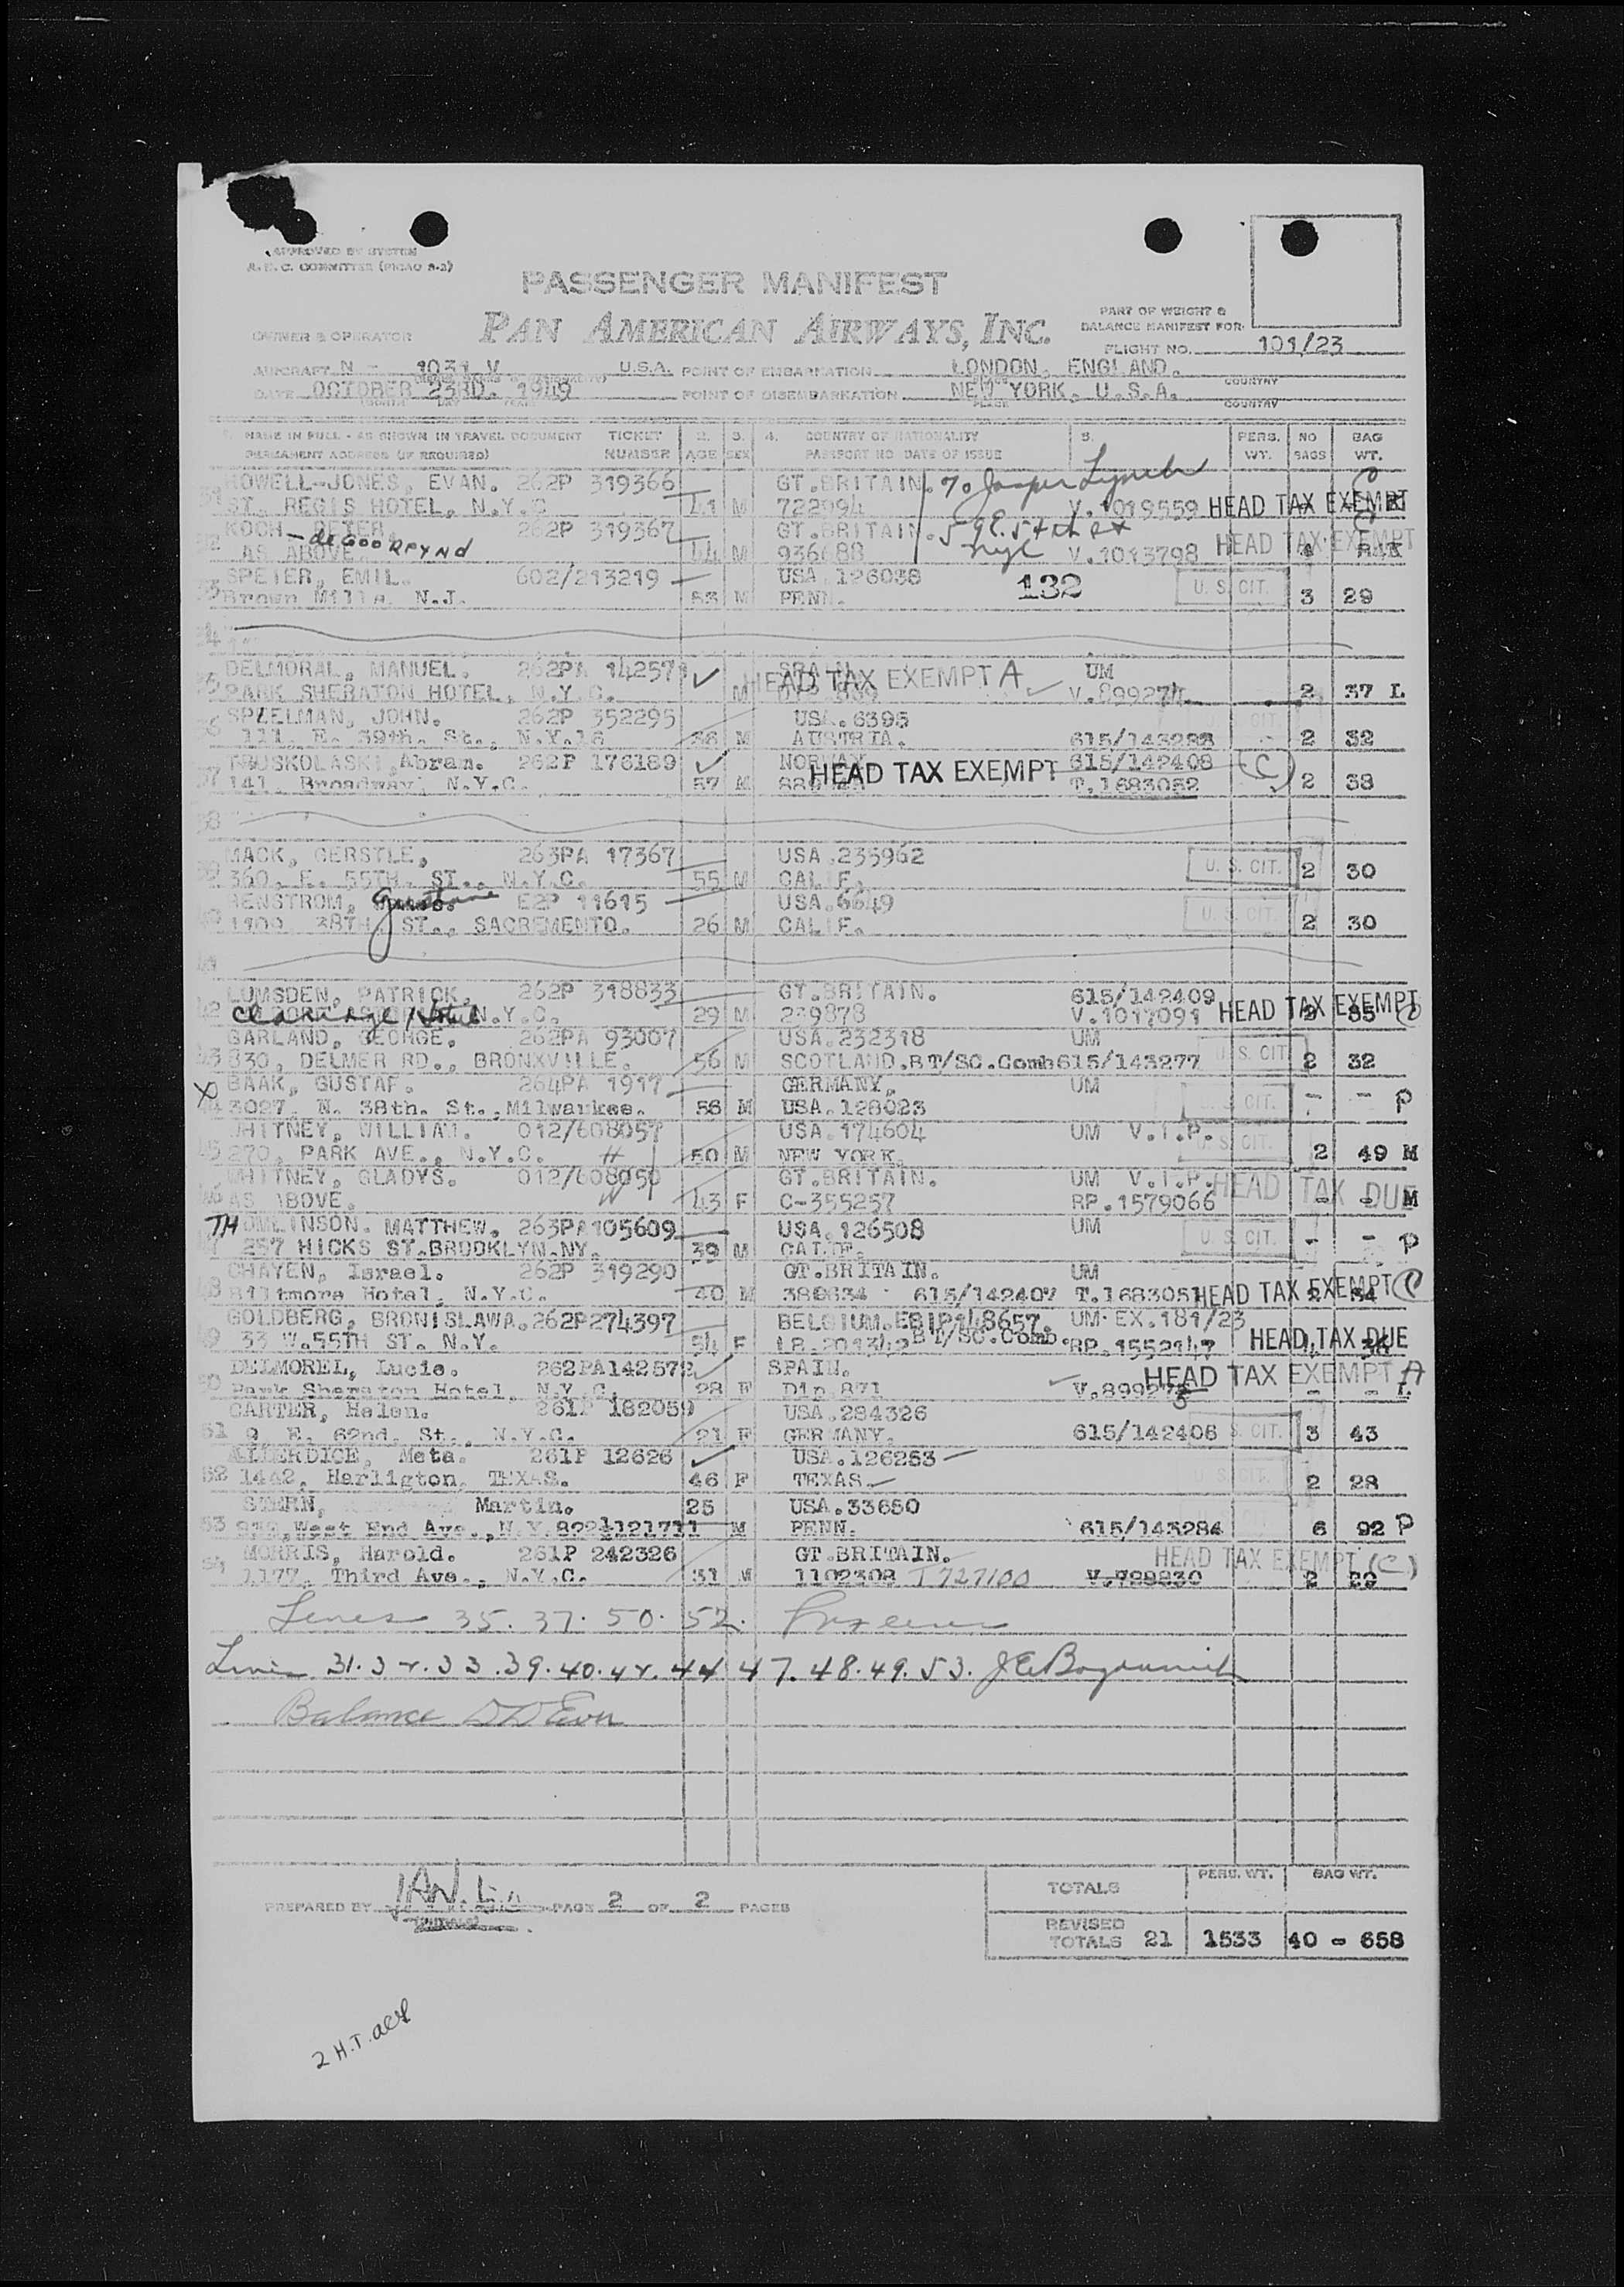 APPROVED BY SYSTEM
A.E.C. COMMITTEE (PICAO 8-2)
PASSENGER MANIFEST
OWNER & OPERATOR PAN AMERICAN AIRWAYS, INC.
PART OF WEIGHT &
BALANCE MANIFEST FOR
FLIGHT NO. 101/23
AIRCRAFT N - 1031 V U.S.A. POINT OF EMBARKATION LONDON, ENGLAND.
DATE OCTOBER 23RD. 1949 POINT OF DISEMBARKATION NEW YORK, U.S.A.
PLACE COUNTRY
1. NAME IN FULL - AS SHOWN IN TRAVEL DOCUMENT TICKET 2. 3. 4. COUNTRY OF NATIONALITY 5. PERS. NO BAG
PERMANENT ADDRESS (IF REQUIRED) NUMBER AGE SEX PASSPORT NO DATE OF ISSUE WT. BAGS WT.
HOWELL-JONES, EVAN. 262P 319366 GT.BRITAIN. % Jasper Lynch
31 ST. REGIS HOTEL, N.Y.C 41 M 722994 V.1019559 HEAD TAX EXEMPT
KOCH - de GOOREYND PETER. 262P 319367 GT.BRITAIN. 59 E. 54th st
32 AS ABOVE. 44 M 936688 nyc V.1013798 HEAD TAX EXEMPT
SPEIER, EMIL. 602/213219 USA 126038 132 U. S. CIT.
33 Brown Mills, N.J. 53 M PENN. 3 29
34
DELMORAL, MANUEL. 262PA 142571 ✓ SPAIN HEAD TAX EXEMPT A UM
35 PARK SHERATON HOTEL, N.Y.C. M V.899274 2 37 L
SPEELMAN, JOHN. 262P 352295 USA.6395 U. S. CIT.
36 111. E. 39th. St., N.Y.16 36 M AUSTRIA. 615/143283 2 32
TRUSKOLASKI, Abram. 262P 176189 ✓ NORWAY HEAD TAX EXEMPT 615/142408 (C)
37 141, Broadway, N.Y.C. 57 M T.1683052 2 38
38
MACK, GERSTLE, 263PA 17367 USA.235962 U. S. CIT.
39 360, E. 55TH. ST., N.Y.C. 55 M CALIF. 2 30
HENSTROM, Gustave E2P 11615 USA.6649 U. S. CIT.
40 1109 38TH. ST., SACREMENTO. 26 M CALIF. 2 30
41
LUMSDEN, PATRICK. 262P 318833 GT.BRITAIN. 615/142409 HEAD TAX EXEMPT
42 Claridge Hotel N.Y.C. 29 M 239878 V.1017091 2 35
GARLAND, GEORGE. 262PA 93007 USA.232318 UM U. S. CIT.
43 830, DELMER RD., BRONXVILLE. 56 M SCOTLAND.BT/SC.Comb 615/143277 2 32
X BAAK, GUSTAF. 264PA 1917 GERMANY. UM U. S. CIT.
44 3027. N. 38th. St., Milwaukee. 56 M USA.128023 - - P
WHITNEY, WILLIAM. 012/608057 USA.174604 UM V.I.P. U. S. CIT.
45 270, PARK AVE., N.Y.C. 50 M NEW YORK. 2 49 M
WHITNEY, GLADYS. 012/608050 GT.BRITAIN. UM V.I.P. HEAD TAX DUE
46 AS ABOVE. 43 F C-355257 RP.1579066 - - M
THOMLINSON. MATTHEW. 263PA105609 USA.126508 UM U. S. CIT.
47 257 HICKS ST.BROOKLYN.NY. 39 M CALIF. - - P
CHAYEN, Israel. 262P 319290 GT.BRITAIN. UM
48 Biltmore Hotel, N.Y.C. 40 M 380834 615/142407 T.1683051 HEAD TAX EXEMPT (C) 2 34
GOLDBERG, BRONISLAWA. 262P274397 BELGIUM.EBIP148657. UM.EX.181/23
49 33 W.55TH ST. N.Y. 54 F LB.201342 BT/SC.Comb. RP.1552147 HEAD TAX DUE
DELMOREL, Lucie. 262PA142572 ✓ SPAIN. HEAD TAX EXEMPT A
50 Park Sheraton Hotel, N.Y.C. 28 F Dip 871 V.899275 - - L
CARTER, Helen. 261P 182059 USA.284326
51 9 E. 62nd. St., N.Y.C. 21 F GERMANY. 615/142406 U. S. CIT. 3 43
ALLERDICE, Meta. 261P 12626 ✓ USA.126253
52 1442, Harligton, TEXAS. 46 F TEXAS U. S. CIT. 2 28
STERN, Martin. 25 USA.33650
53 939, West End Ave., N.Y. M PENN. 615/143284 6 92 P
MORRIS, Harold. 261P 242326 GT.BRITAIN. HEAD TAX EXEMPT (C)
54 1177, Third Ave., N.Y.C. 31 M 1102308 T 727100 V.799830 2 29
Lines 35. 37. 50. 52.
Lines 31. 32. 33. 39. 40. 42. 44 47. 48. 49. 53.
Balance
PREPARED BY (INITIALS) PAGE 2 OF 2 PAGES
TOTALS PERS. WT. BAG WT.
REVISED TOTALS 21 1533 40 - 658
2 H.T.